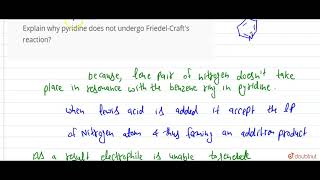 Explain why pyridine does not undergo Friedel-Craft's
reaction?
N
because, lone pair of nitrogen doesn't take
place in resonance with the benzene ring in pyridine.
when lewis acid is added it accept the lP
of Nitrogen atom & thus forming an addition product
As a result electrophile is unable to
doubtnut